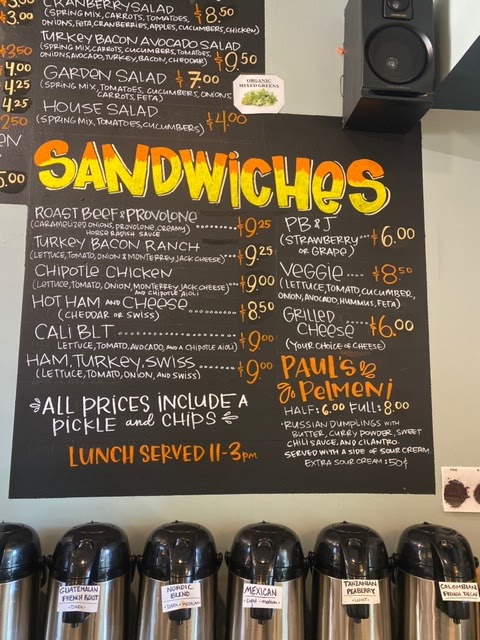 3.00
CRANBERRY SALAD $8.50
(SPRING MIX, CARROTS, TOMATOES,
ONIONS, FETA, CRANBERRIES, APPLES, CUCUMBERS, CHICKEN)
3.50
TURKEY BACON AVOCADO SALAD
(SPRING MIX, CARROTS, CUCUMBERS, TOMATOES,
ONIONS, AVOCADO, TURKEY, BACON, CHEDDAR) $9.50
4.00
4.25
4.25
2.50
GARDEN SALAD $7.00
(SPRING MIX, TOMATOES, CUCUMBERS, ONIONS,
CARROTS, FETA)
ORGANIC
MIXED GREENS
HOUSE SALAD
(SPRING MIX, TOMATOES, CUCUMBERS) $4.00
EN
5.00
SANDWICHES
ROAST BEEF & PROVOLONE ........ $9.25
(CARAMELIZED ONIONS, PROVOLONE, CREAMY
HORSE RADISH SAUCE
TURKEY BACON RANCH ........ $9.25
(LETTUCE, TOMATO, ONION & MONTERREY JACK CHEESE)
CHIPOTLE CHICKEN $9.00
(LETTUCE, TOMATO, ONION, MONTERREY JACK CHEESE
AND CHIPOTLE AIOLI)
HOT HAM AND CHEESE ........ $8.50
(CHEDDAR OR SWISS)
CALI BLT ........ $9.00
LETTUCE, TOMATO, AVOCADO, AND A CHIPOTLE AIOLI)
HAM, TURKEY, SWISS ........ $9.00
(LETTUCE, TOMATO, ONION, AND SWISS)
ALL PRICES INCLUDE A
PICKLE and CHIPS
LUNCH SERVED 11-3pm
PB & J
(STRAWBERRY ... $6.00
OR GRAPE)
VEGGIE .... $8.50
(LETTUCE, TOMATO, CUCUMBER,
ONION, AVOCADO, HUMMUS, FETA)
GRILLED
CHEESE ... $6.00
(YOUR CHOICE OF CHEESE)
PAUL'S
PELMENI
HALF: 6.00 FULL: 8.00
•RUSSIAN DUMPLINGS WITH
BUTTER, CURRY POWDER, SWEET
CHILI SAUCE, AND CILANTRO.
SERVED WITH A SIDE OF SOUR CREAM
EXTRA SOUR CREAM : 50¢
GUATEMALAN
FRENCH ROAST
• DARK •
NORDIC
BLEND
• DARK + MEDIUM •
MEXICAN
• LIGHT + MEDIUM •
TANZANIAN
PEABERRY
• LIGHT •
COLOMBIAN
FRENCH DECAF